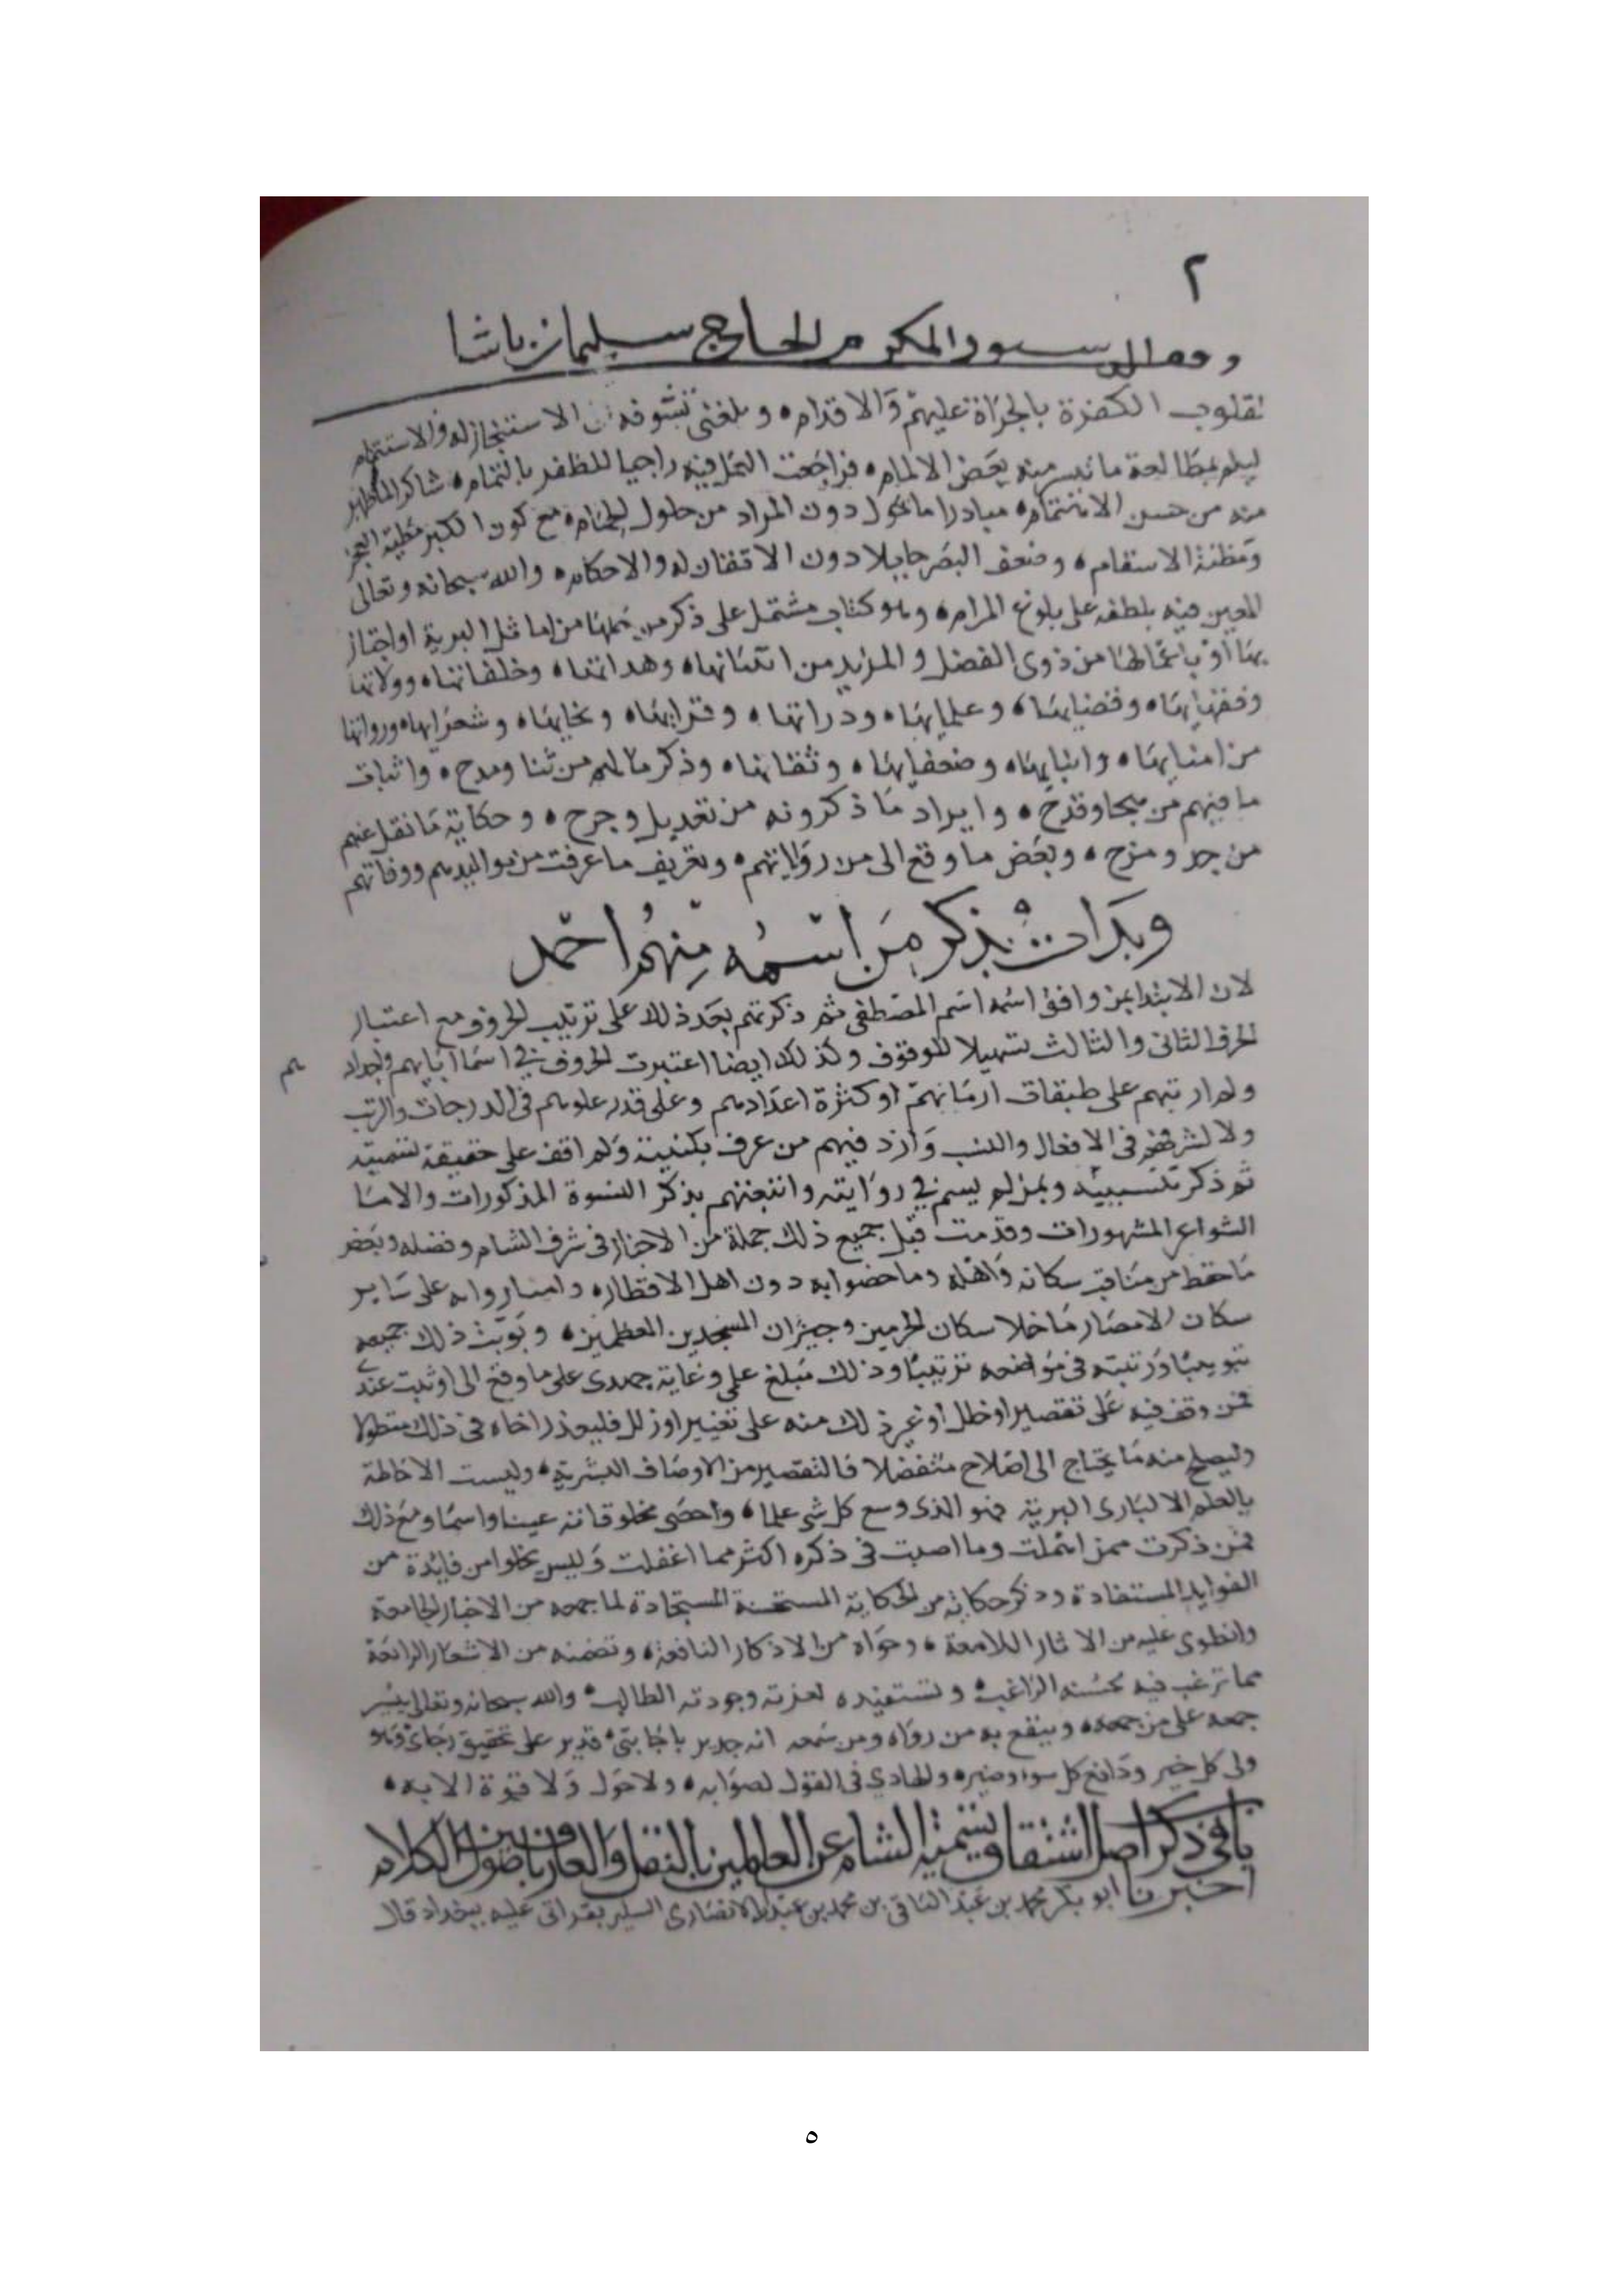 ٢
الحاج سليمان باشا
لقلوب الكفرة بالجراة عليهم والاقدام ه وبلغني تشوقه الاستنجاز له والاستتمام
ليلم بمطالعة ما تيسر منه بعض الالمام ه فراجعت العمل فيه راجيا للظفر بالتمام ه شاكرا لما ظهر
منه من حسن الاهتمام ه مبادرا ما يحول دون المراد من حلول الحمام ه مع كون الكبر مظنة العجز
ومظنة الاسقام ه وضعف البصر حايلا دون الاتقان له والاحكام ه والله سبحانه وتعالى
المعين فيه بلطفه على بلوغ المرام ه وهو كتاب مشتمل على ذكر من حلها من اماثل البرية او اجتاز
بها او باعمالها من ذوي الفضل والمزيد من انبيائها ه وهداتها ه وخلفائها ه وولاتها
وفقهايها ه وقضايها ه وعلمايها ه ودراتها ه وقرايها ه ونحايها ه وشعرايها ه ورواتها
من امنايها ه وابنايها ه وضعفايها ه وثقاتها ه وذكر ما لهم من ثنا ومدح ه واثبات
ما فيهم من هجا وقدح ه وايراد ما ذكرونه من تعديل وجرح ه وحكاية ما نقل عنهم
من جد ومزح ه وبعض ما وقع الى من رواياتهم ه وتعريف ما عرفت من مواليدهم ووفاتهم
وبدات بذكر من اسمه منهم احمد
لان الابتدا بمن وافق اسمه اسم المصطفى ثم ذكرتهم بعد ذلك على ترتيب الحروف مع اعتبار
الحرف الثاني والثالث تسهيلا للوقوف وكذلك ايضا اعتبرت الحروف في اسما آبايهم واجداد
هم
ولم ارتبهم على طبقات ازمانهم او كثرة اعدادهم وعلى قدر علوهم في الدرجات والرتب
ولا لشرفهم في الافعال والنسب وارد فيهم من عرف بكنيته ولم اقف على حقيقة تسميته
ثم ذكر بنسبته وبمن لم يسم في روايته واتبعتهم بذكر النسوة المذكورات والاما
الشواعر المشهورات وقدمت قبل جميع ذلك جملة من الاخبار في شرف الشام وفضله وبعض
ما حفظ من مناقب سكانه واهله وما خصوا به دون اهل الاقطار ه وامتازوا به على ساير
سكان الامصار ما خلا سكان الحرمين وجيران المسجدين المعظمين ه وبوبت ذلك جميعه
تبويبا ورتبته في مواضعه ترتيبا وذلك مبلغ علمي وغاية جهدي على ما وقع الى او ثبت عندي
فمن وقف فيه على تقصير او خلل او عثر ذلك منه على تغيير او زلل فليعذر اخاه في ذلك متطولا
وليصلح منه ما يحتاج الى اصلاح متفضلا فالتقصير من الاوصاف البشرية ه وليست الاحاطة
بالعلم الا لباري البرية فهو الذي وسع كل شي علما ه واحصى مخلوقاته عينا واسما ومع ذلك
فمن ذكرت ممن اهملت وما اصبت في ذكره اكثر مما اغفلت وليس يخلوا من فايدة من
الفوايد المستفادة وذكر حكاية من الحكاية المستحسنة المستجادة لما جمعه من الاخبار الجامعة
وانطوى عليه من الاثار اللامعة ه وحواه من الاذكار النافعة ه وتضمنه من الاشعار الرائعة
مما ترغب فيه لحسنه الراغب ه وتستفيده لعزته وجودته الطالب ه والله سبحانه وتعالى ييسر
جمعه على من جمعه ه وينفع به من رواه ومن سمعه انه جدير باجابتي ه قدير على تحقيق رجائ وهو
ولى كل خير ودافع كل سوا وضير ه والهادي في القول لصوابه ه ولا حول ولا قوة الا به ه
باب في ذكر اصل اشتقاق تسمية الشام عن العالمين بالنقل والعارفين باصول الكلام
اخبرنا ابو بكر محمد بن عبد الباقي بن محمد بن عبد الله الانصاري بقراتي عليه ببغداد قال
٥